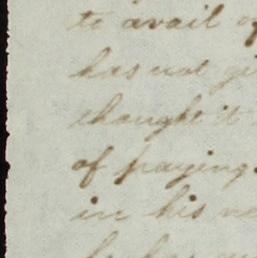 to avail
has not
thought it
of paying
in his